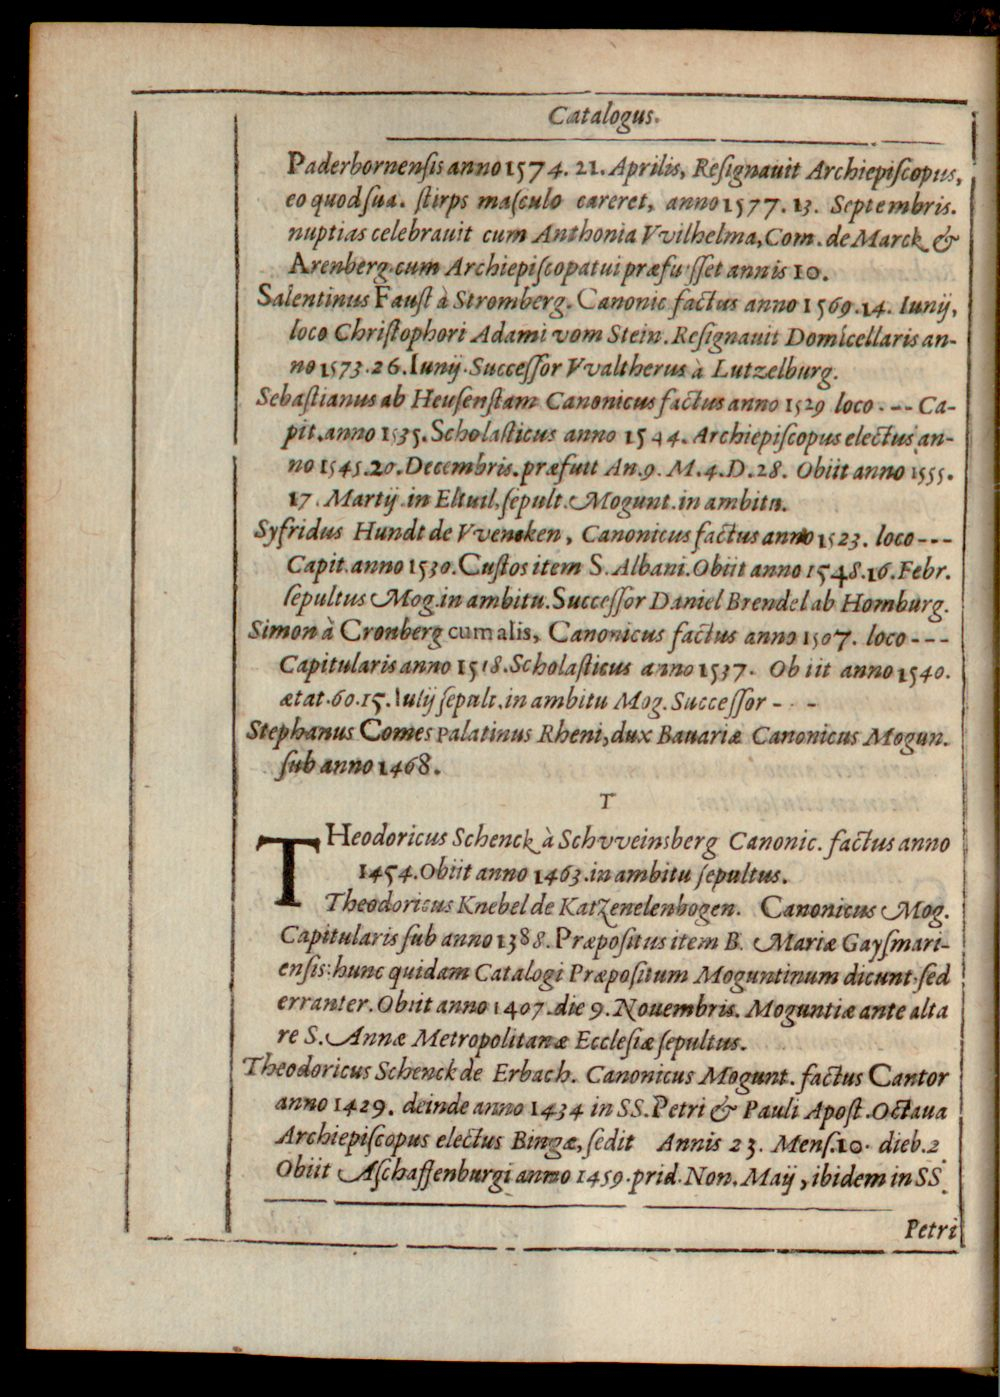 Catalogus.
Paderbornenſis anno 1574. 21. Aprilis, Reſignauit Archiepiſcopus,
eo quod ſua. ſtirps maſculo careret, anno 1577. 13. Septembris.
nuptias celebrauit cum Anthonia Vvilhelma, Com. de Marck &
Arenberg. cum Archiepiſcopatui præfuiſſet annis 10.
Salentinus Fauſt à Stromberg. Canonic factus anno 1569. 14. Iunij,
loco Chriſtophori Adami vom Stein. Reſignauit Domicellaris an-
no 1573. 26. Iunij. Succeſſor Vvaltherus à Lutzelburg.
Sebaſtianus ab Heuſenſtam Canonicus factus anno 1529 loco. --- Ca-
pit. anno 1535. Scholaſticus anno 1544. Archiepiſcopus electus an-
no 1545. 20. Decembris. præfuit An. 9. M. 4. D. 28. Obiit anno 1555.
17. Martij. in Eltuil, ſepult. Mogunt. in ambitu.
Syfridus Hundt de Vvencken, Canonicus factus anno 1523. loco ---
Capit. anno 1530. Cuſtos item S. Albani. Obiit anno 1548. 16. Febr.
ſepultus Mog. in ambitu. Succeſſor Daniel Brendel ab Homburg.
Simon à Cronberg cum alis, Canonicus factus anno 1507. loco ---
Capitularis anno 1518. Scholaſticus anno 1537. Obiit anno 1540.
ætat. 60. 15. Iulij ſepult. in ambitu Mog. Succeſſor - - -
Stephanus Comes palatinus Rheni, dux Bauariæ Canonicus Mogun.
ſub anno 1468.
T
THeodoricus Schenck à Schvveinsberg Canonic. factus anno
1454. Obiit anno 1463. in ambitu ſepultus.
Theodoricus Knebel de Katzenelenbogen. Canonicus Mog.
Capitularis ſub anno 1388. Præpoſitus item B. Mariæ Gayſmari-
enſis: hunc quidam Catalogi Præpoſitum Moguntinum dicunt. ſed
erranter. Obiit anno 1407. die 9. Nouembris. Moguntiæ ante alta
re S. Annæ Metropolitanæ Eccleſiæ ſepultus.
Theodoricus Schenck de Erbach. Canonicus Mogunt. factus Cantor
anno 1429. deinde anno 1434 in SS. Petri & Pauli Apoſt. Octaua
Archiepiſcopus electus Bingæ, ſedit Annis 23. Menſ. 10. dieb. 2
Obiit Aſchaffenburgi anno 1459. prid. Non. Maij, ibidem in SS.
Petri